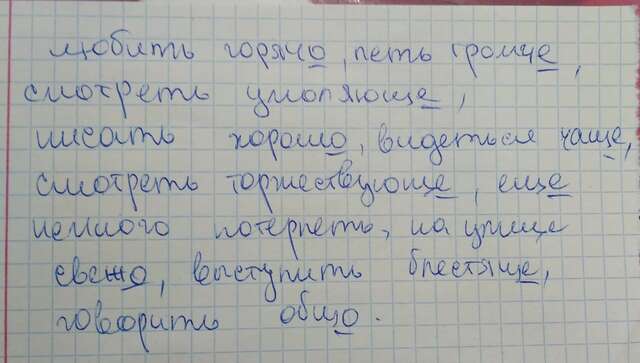 любить горячо, петь громче,
смотреть умоляюще,
писать хорошо, видеться чаще,
смотреть торжествующе, еще
немного потерпеть, на улице
свежо, выступить блестяще,
говорить общо.